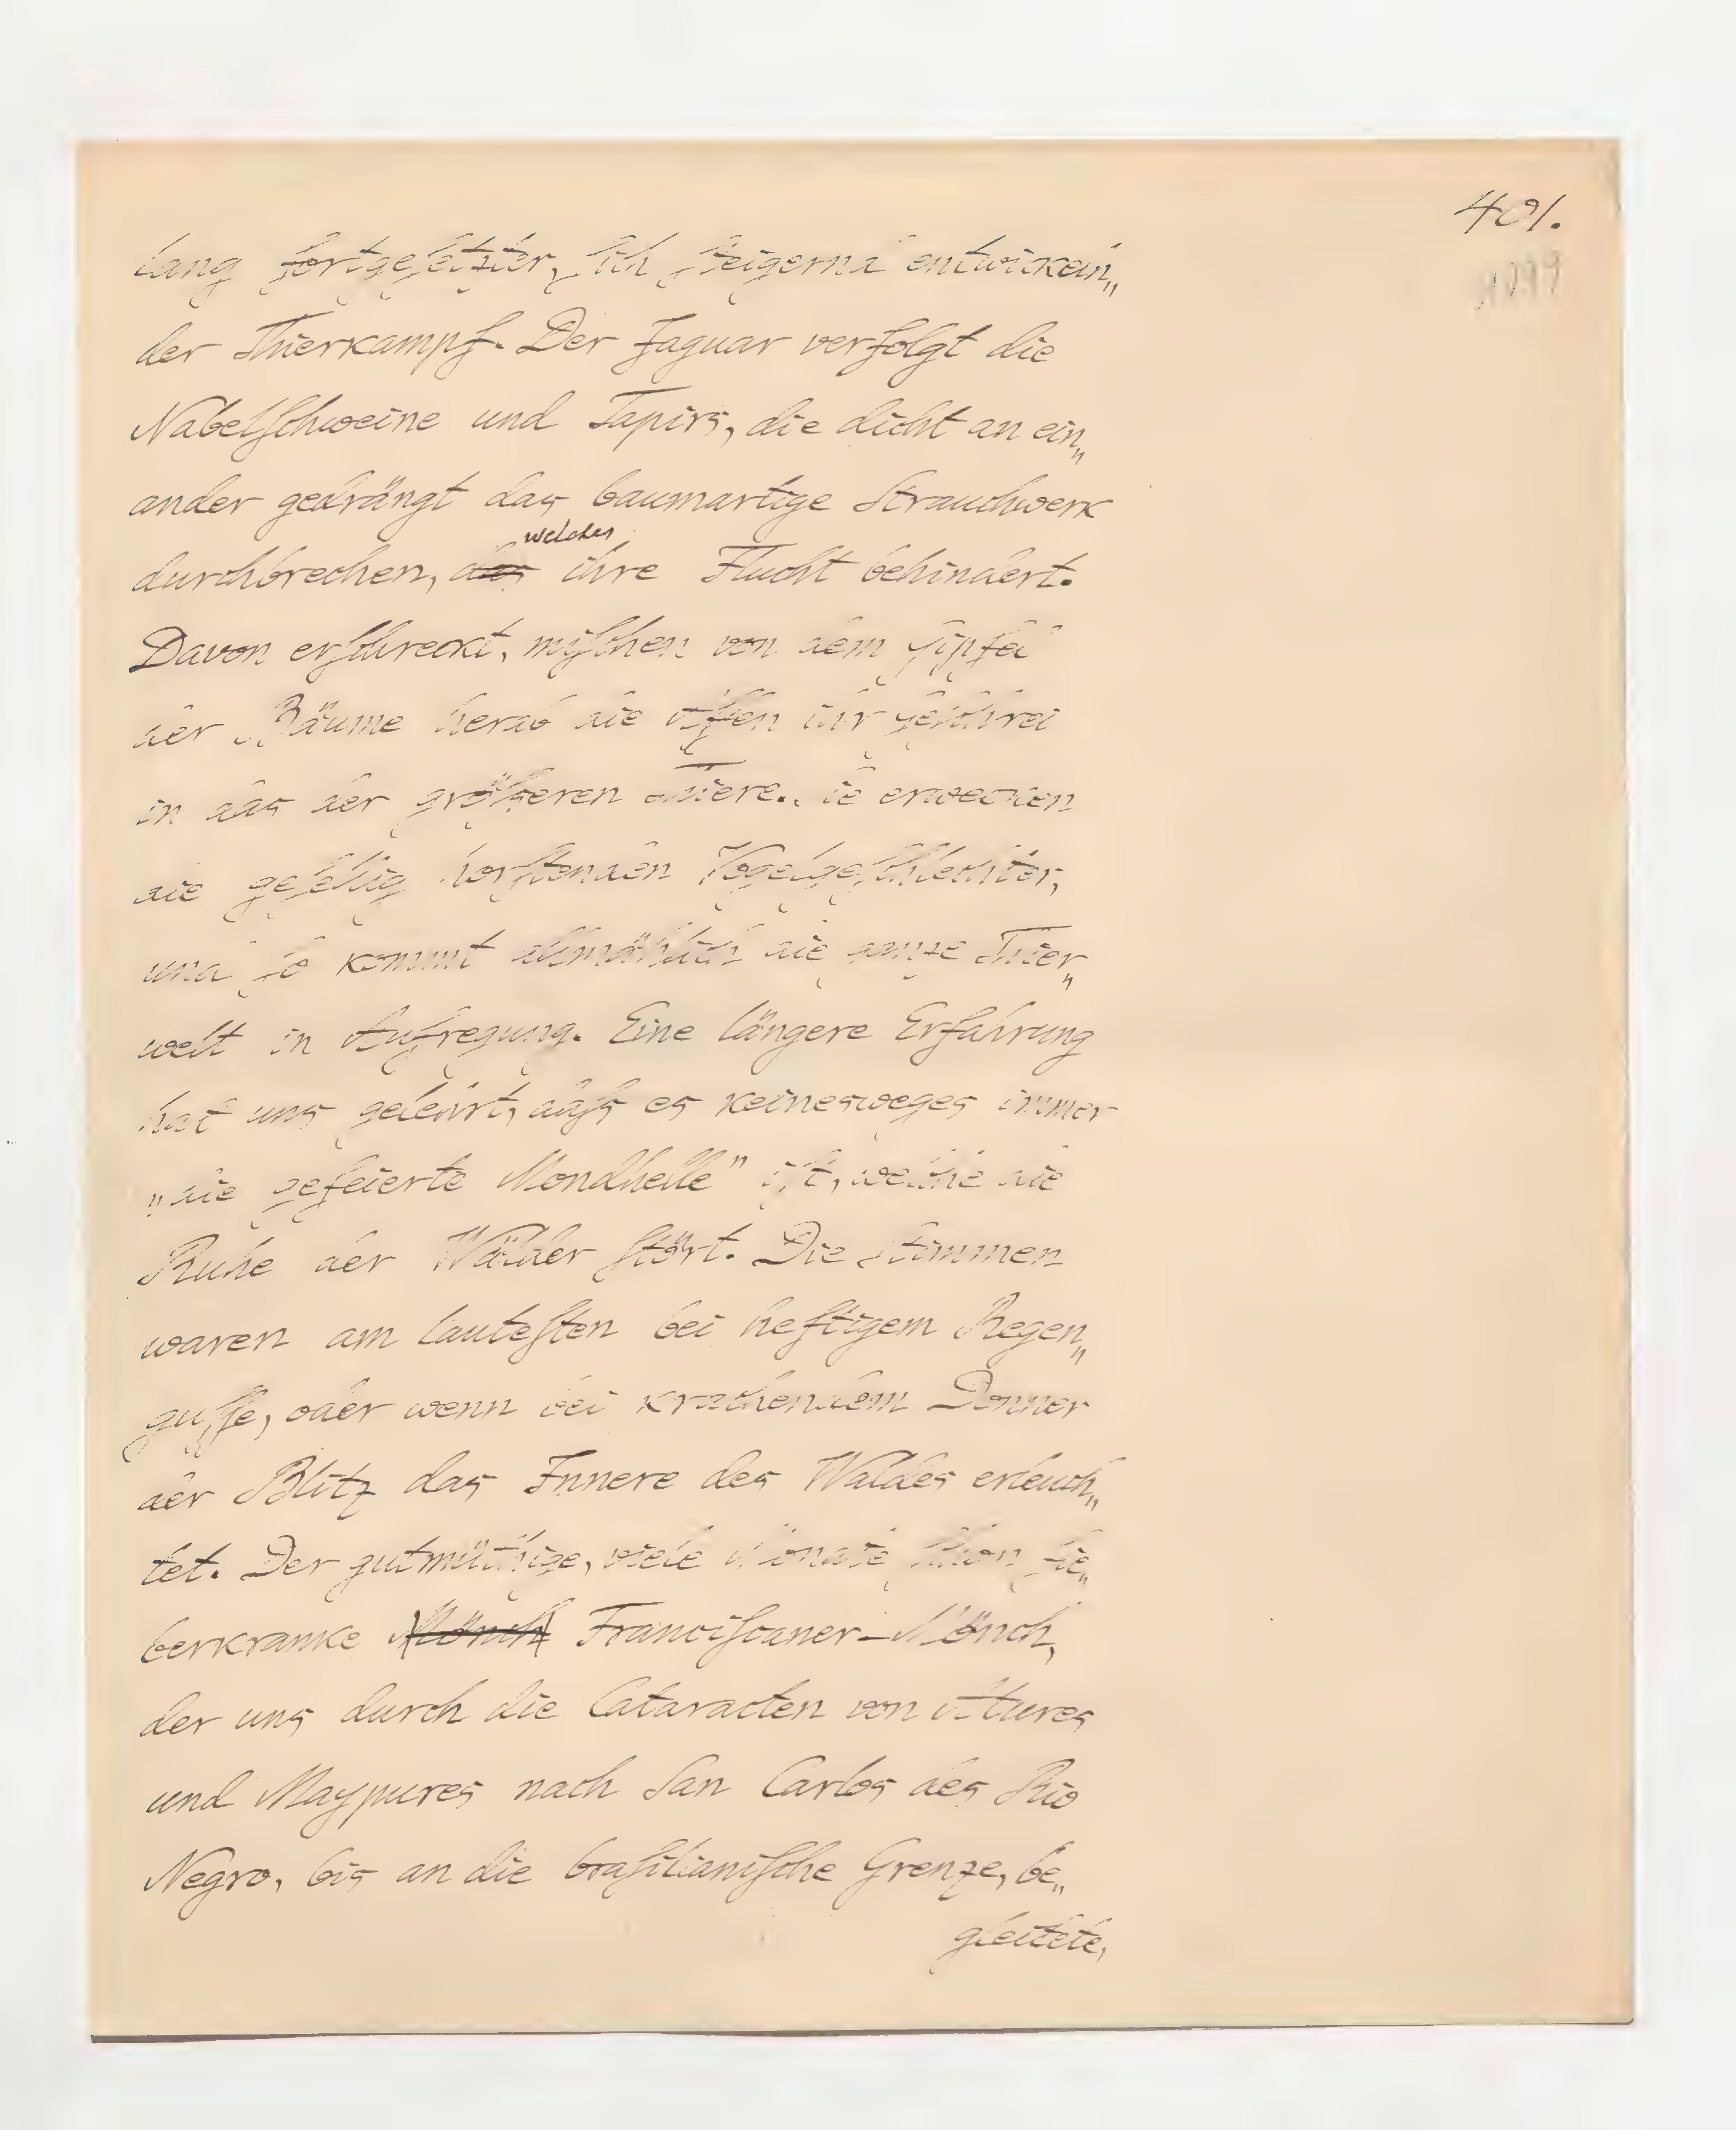 401.
lang fortgeſetzter, ſich ſteigernd entwickeln„
der Thierkampf. Der Jaguar verfolgt die
Nabelſchweine und Tapirs, die dicht an ein„
ander gedrängt das baumartige Strauchwerk
welches
durchbrechen, das ihre Flucht behindert.
Davon erſchreckt, miſchen von dem Gipfel
der Bäume herab die Affen ihr Geſchrei
in das der größeren Thiere. Sie erwecken
die geſellig horſtenden Vogelgeſchlechter,
und ſo kommt allmählich die ganze Thier„
welt in Aufregung. Eine längere Erfahrung
hat uns gelehrt, daſs es keinesweges immer
„die gefeierte Mondhelle” iſt, welche die
Ruhe der Wälder ſtört. Die Stimmen
waren am lauteſten bei heftigem Regen„
guſſe, oder wenn bei krachendem Donner
der Blitz das Innere des Waldes erleuch„
tet. Der gutmüthige, viele Monate ſchon fie„
berkranke Mönch Franciſcaner-Mönch,
der uns durch die Cataracten von Atures
und Maypures nach San Carlos des Rio
Negro, bis an die braſilianiſche Grenze, be„
gleitete,